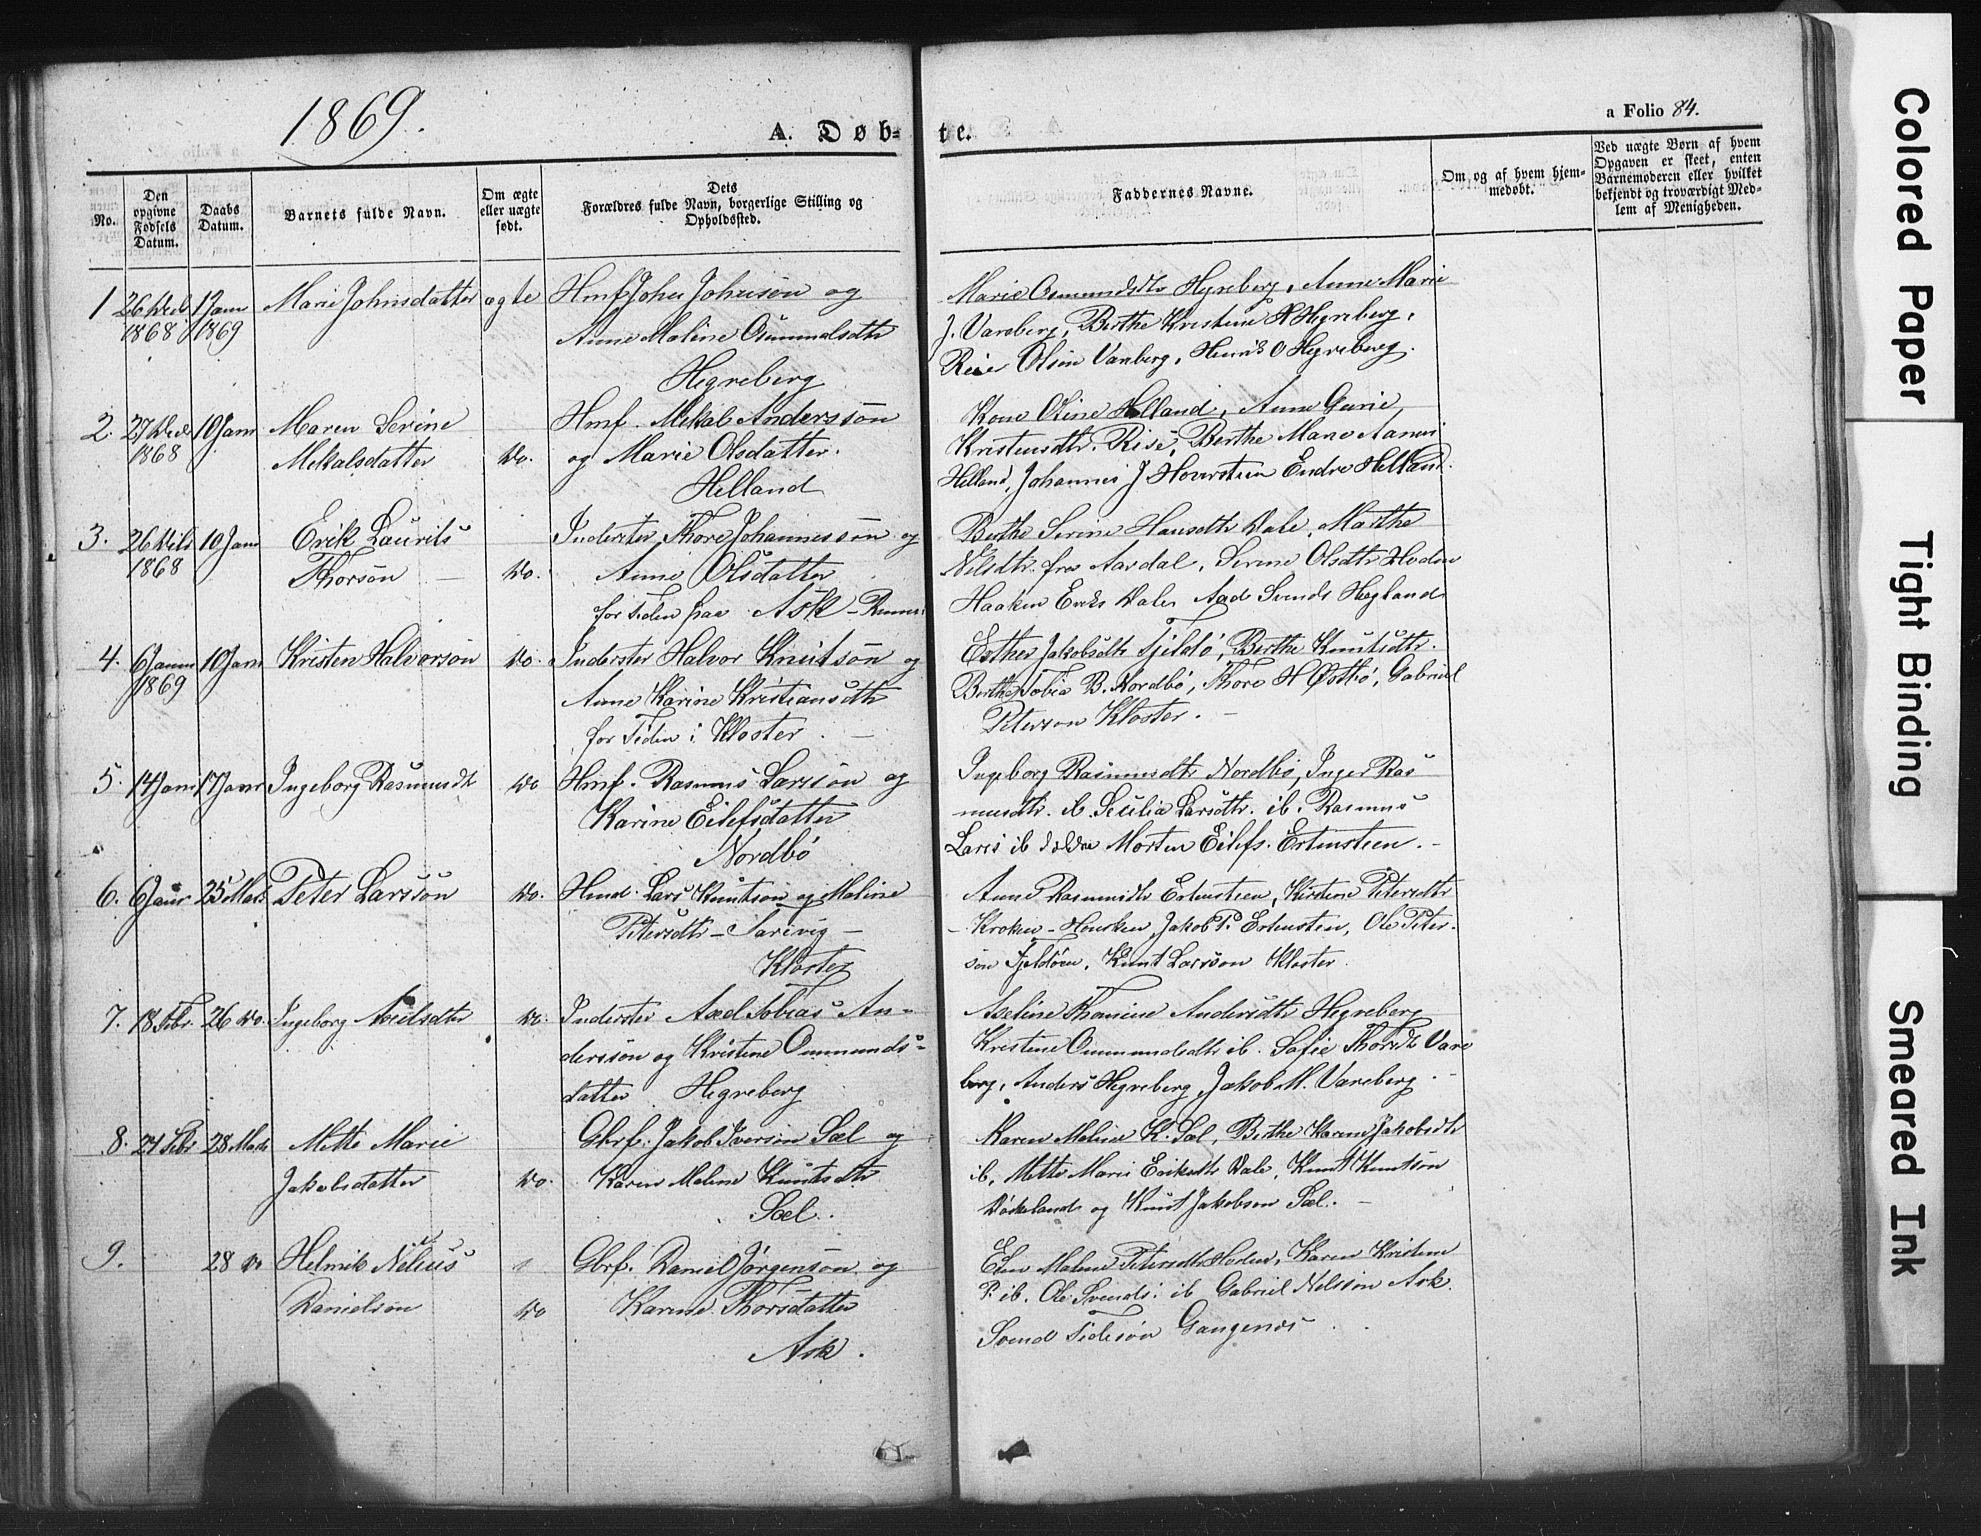 1869.
A. Døb-
te.
a Folio 84.
No.
Den opgivne Fødsels Datum.
Daabs Datum.
Barnets fulde Navn.
Om ægte eller uægte født.
Dets Forældres fulde Navn, borgerlige Stilling og Opholdssted.
Faddernes Navne.
Om og af hvem hjem-
medøbt.
Ved uægte Børn af hvem
Opgaven er skeet, enten
Barnemoderen eller hvilket
bekjendt og troværdigt Med-
lem af Menigheden.
1 26 Decb. 1 Jann Marie Johnsdatter ægte Hmf John Johnson og
1868 1869 Anne Maline Osmundsdtr
Hegreberg
Marie Osmundsdtr Hegreberg, Anne Marie
J. Vareberg, Berthe Kristine Hegreberg,
Reier Olsen Vareberg, Henrik O Hegreberg.
2. 27 Dec 10 Jann Maren Serine Hmf. Mikal Andersson
1868 Mikalsdatter Do. og Marie Olsdatter.
Helland
Kone Oline Helland, Anne Gurie
Kristensdtr. Risé, Berthe Mane
Helland, Johannes J Hoverstein Endre Helland.
3. 26 Dcb 10 Jann Erik Laurits Inderster Thore Johannesson og
1868 Thorson Do. Anne Olsdatter
for Tiden paa Ask
Berthe Serine Hansdtr Dale, Marthe
Nilsdtr. fra Aardal, Serine Olsdtr Hodne
Haaken Eriks Dale Aad Svends Hegland
4. 6 Jann 10 Jann Kristen Halvorson Do. Inderster Halvor Knutson og
1869 Anne Karine Kristiansdtr
for Tiden i Kloster.
Esther Jakobsdtr Fjeldö, Berthe Knutsdtr.
Berthe Tobia B. Nordbö, Thore H Østbö, Gabriel
Peterson Kloster.
5. 14 Jann 17 Jann Ingeborg Rasmusdt Do Hmf. Rasmus Larsson og
Karine Eilefsdatter
Nordbö
Ingeborg Rasmusdtr Nordbö, Inger Ras
musdtr. ib Secilia Larsdtr. ib. Rasmus
Lars ib Morten Eilefs. Ertensteen.
6. 6 Janr 25 Mars Peter Larsson Do. Hmd. Lars Knutson og Maline
Petersdtr
Kloster
Anne Rasmusdtr Ertensteen, Kirstine Petersdtr
Kroken - Housken, Jakob P. Ertensteen, Ole Peter-
son Fjeldöen, Knut Larsson Kloster.
7. 18 Febr. 26 Do. Ingeborg Axelsdtr Do. Inderster Axel Tobias An-
dersson og Kristine Ommunds-
datter Hegreberg
Axeline Thomine Andersdtr Hegreberg
Kristine Ommundsdtr ib. Sofie Thorsdt Vare
berg, Anders Hegreberg, Jakob M. Vareberg
8. 24 Febr 28 Mars Mette Marie Gbrf. Jakob Iverson Sæl og
Jakobsdatter Do. Karen Maline Knutsdtr
Sæl.
Karen Maline K. Sæl, Berthe Karine Jakobsdt
ib, Mette Marie Eriksdtr Dale, Knut Knutson
og Knut Jakobsen Sæl.
9. 28 Do Helmik Nelius Gbrf. Daniel Jörgenson og
Danielson Do Karine Thorsdatter
Ask.
Elen Maline Petersdtr Hodne, Karen Kristine
P. ib. Ole Svends. ib Gabriel Nelsson Ask.
Svend Gangenæs
Colored Paper
Tight Binding
Smeared Ink